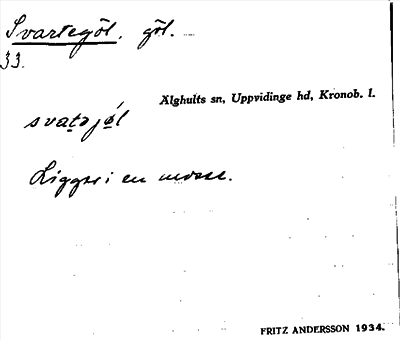 Svartegöl. göl.
33.
Älghults sn, Uppvidinge hd, Kronob. l.
svatəjǿl
Ligger i en mosse.
FRITZ ANDERSSON 1934.